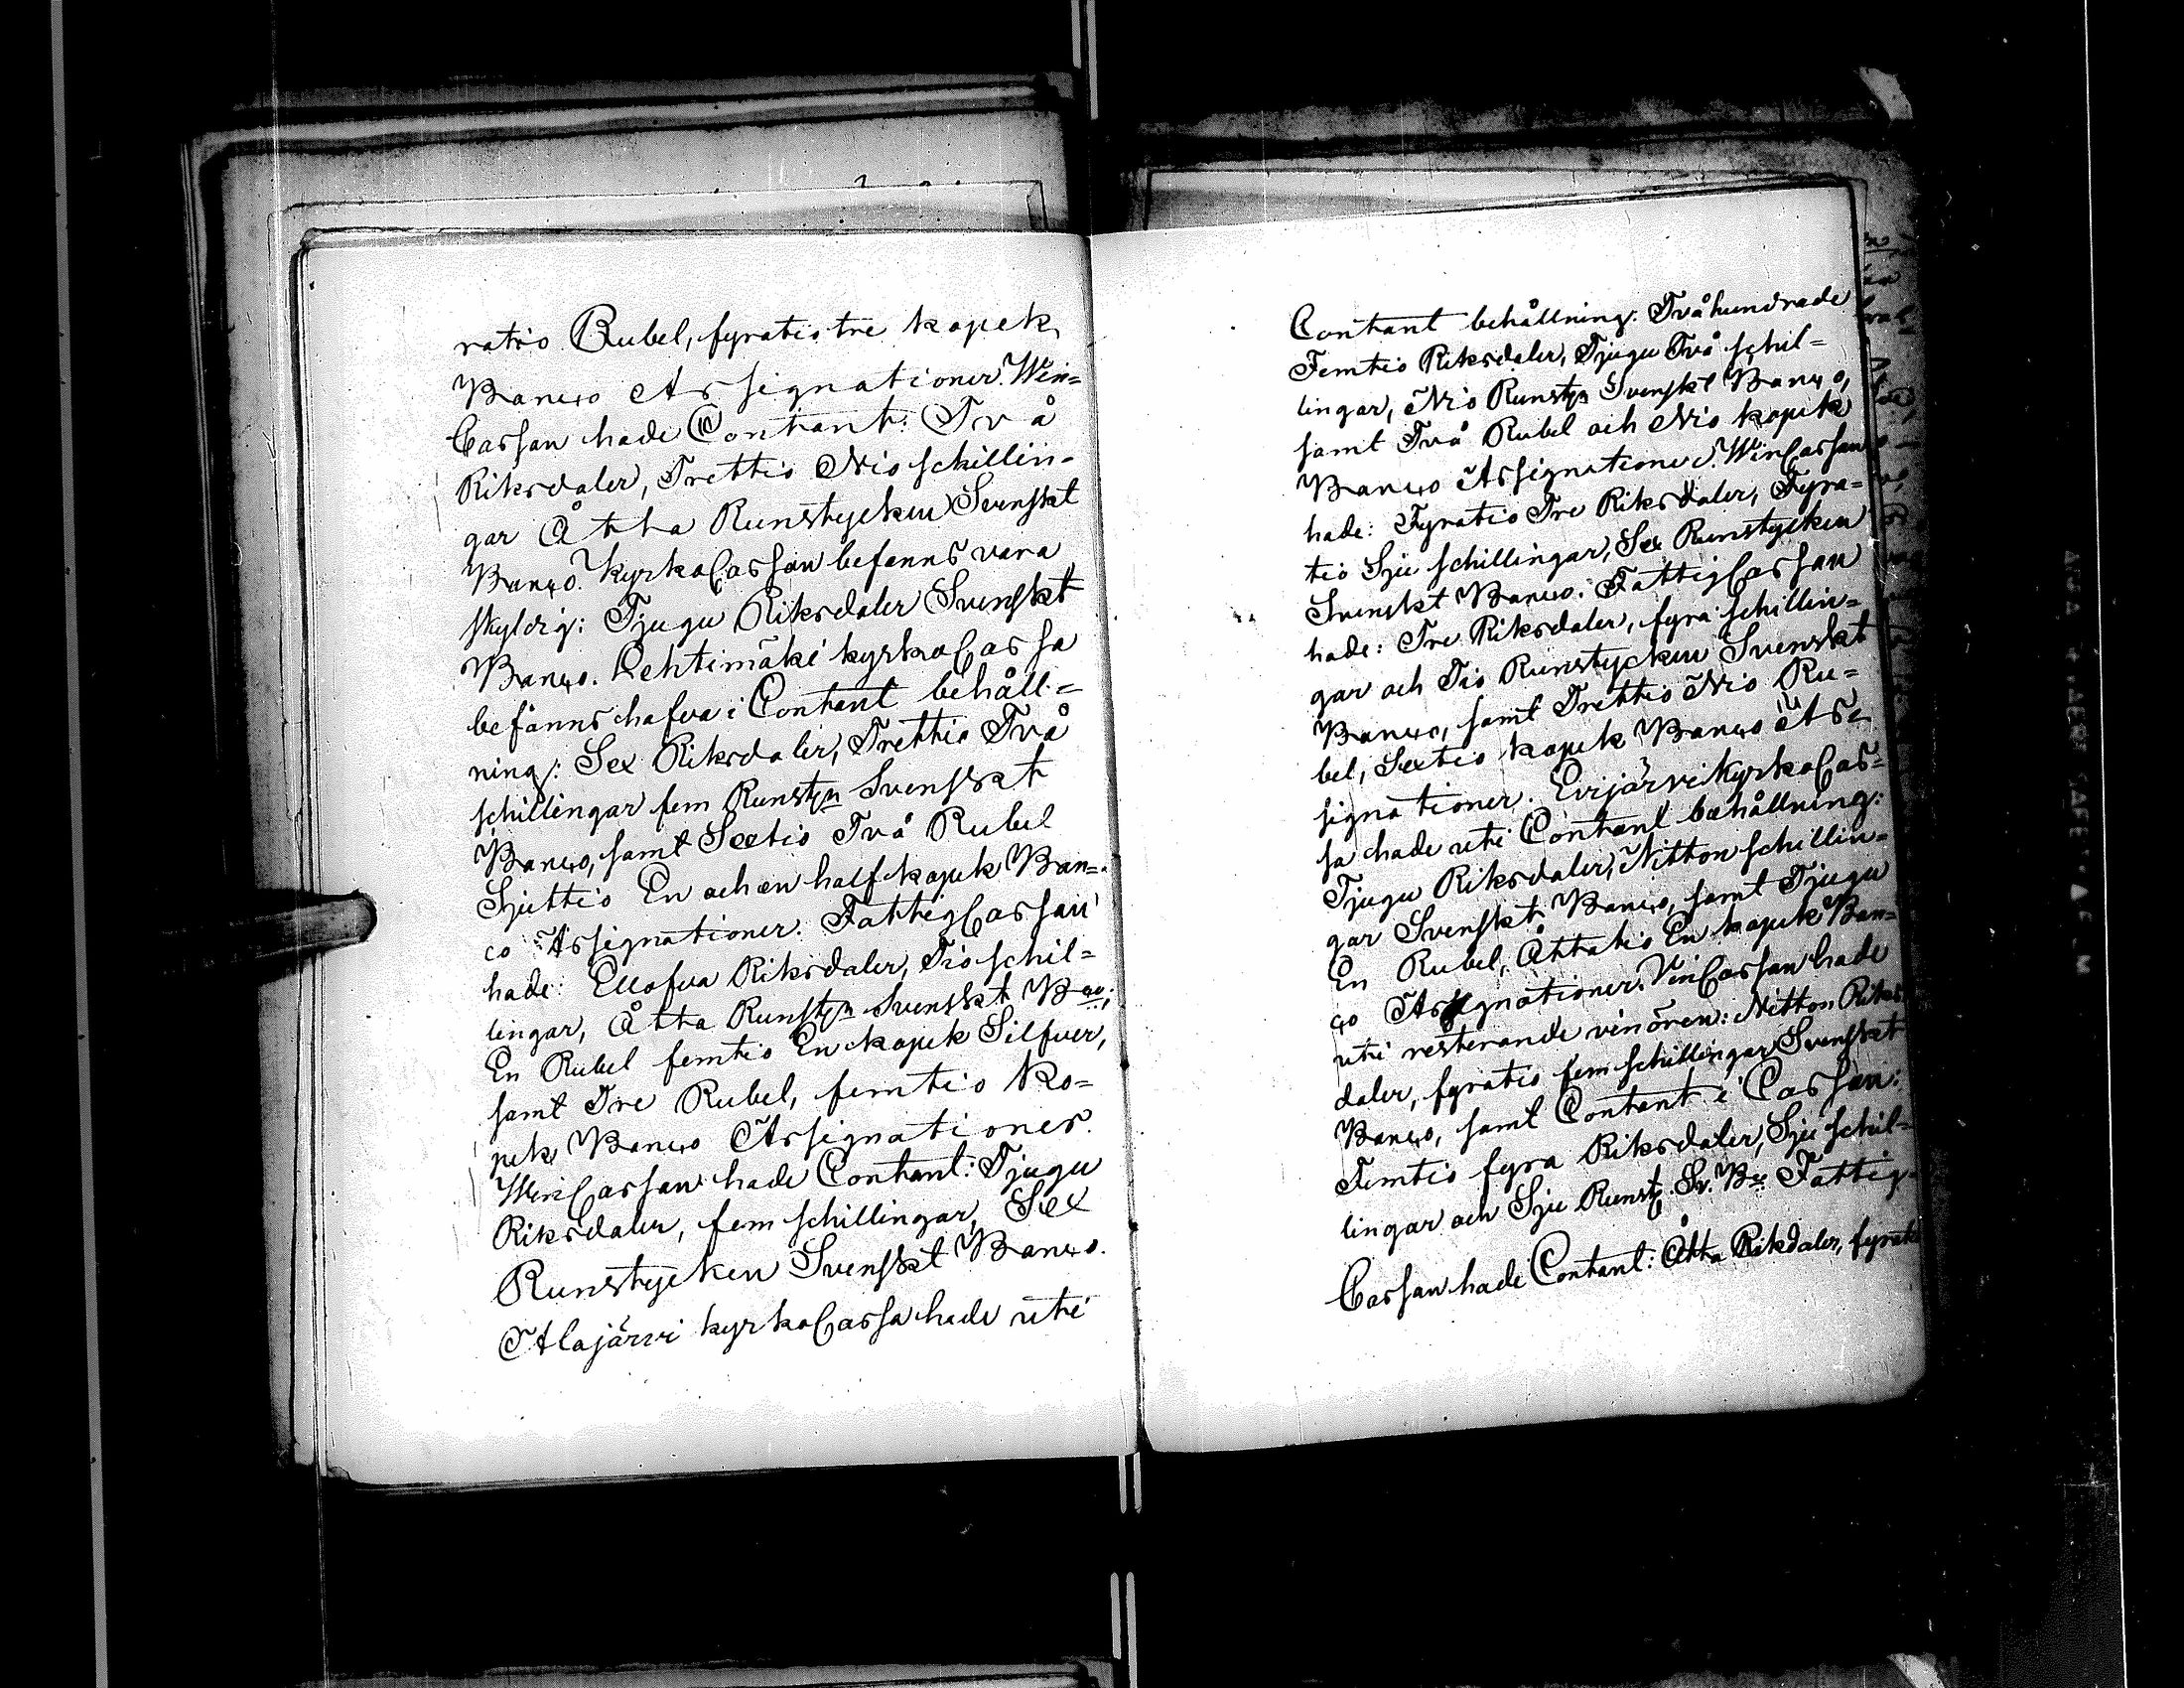 ratio Rubel, fyratio tre kopek
Banco Assignationer. Win-
Cassan hade Contant: Två
Riksdaler, Trettio Nio schillin-
gar Åtta Runstycken Svenskt
Banco. KyrkoCassan befanns vara
skyldig: Tjugu Riksdaler Svenskt
Banco. Lehtimäki kyrkoCassa
befanns hafva i Contant behåll-
ning: Sex Riksdaler, Trettio Två
schillingar fem Runstn Svenskt
Banco, samt Sextio Två Rubel
Sjuttio En och en half kopek Ban-
co Assignationer. FattigCassan
hade: Ellofva Riksdaler, Tio schil-
lingar, Åtta Runstn Svenskt Bco;
En Rubel femtio En kopek Silfver,
samt Tre Rubel, femtio Ko-
pek Banco Assignationer.
WinCassan hade Contant: Tjugu
Riksdaler, fem schillingar, Sex
Runstycken Svenskt Banco.
Alajärvi kyrkoCassa hade uti
Contant behållning: Tvåhundrade
Femtio Riksdaler, Tjugu Två schil-
lingar, Nio Runstn Svenskt Banco,
samt Två Rubel och Nio kopek
Banco Assignationer. WinCassan
hade: Fyratio Tre Riksdaler, Fyra-
tio Sju schillingar, Sex Runstycken
Svenskt Banco. FattigCassan
hade: Tre Riksdaler, fyra schillin-
gar och Tio Runstycken Svenskt
Banco, samt Trettio Nio Ru-
bel, Sextio kopek Banco As-
signationer. Evijärvi KyrkoCas-
sa hade uti Contant behållning:
Tjugu Riksdaler, Nitton schillin-
gar Svenskt Banco, samt Tjugu
En Rubel, Åttatio En kopek Ban-
co Assignationer. VinCassan hade
uti resterande vinören: Nitton Riks
daler, fyratio fem schillingar Svenskt
Banco, samt Contant i Cassan:
Femtio fyra Riksdaler, Sju schil-
lingar och Sju Runst. Sv. Bco Fattig-
Cassan hade Contant: Åtta Rikdaler, fyrati